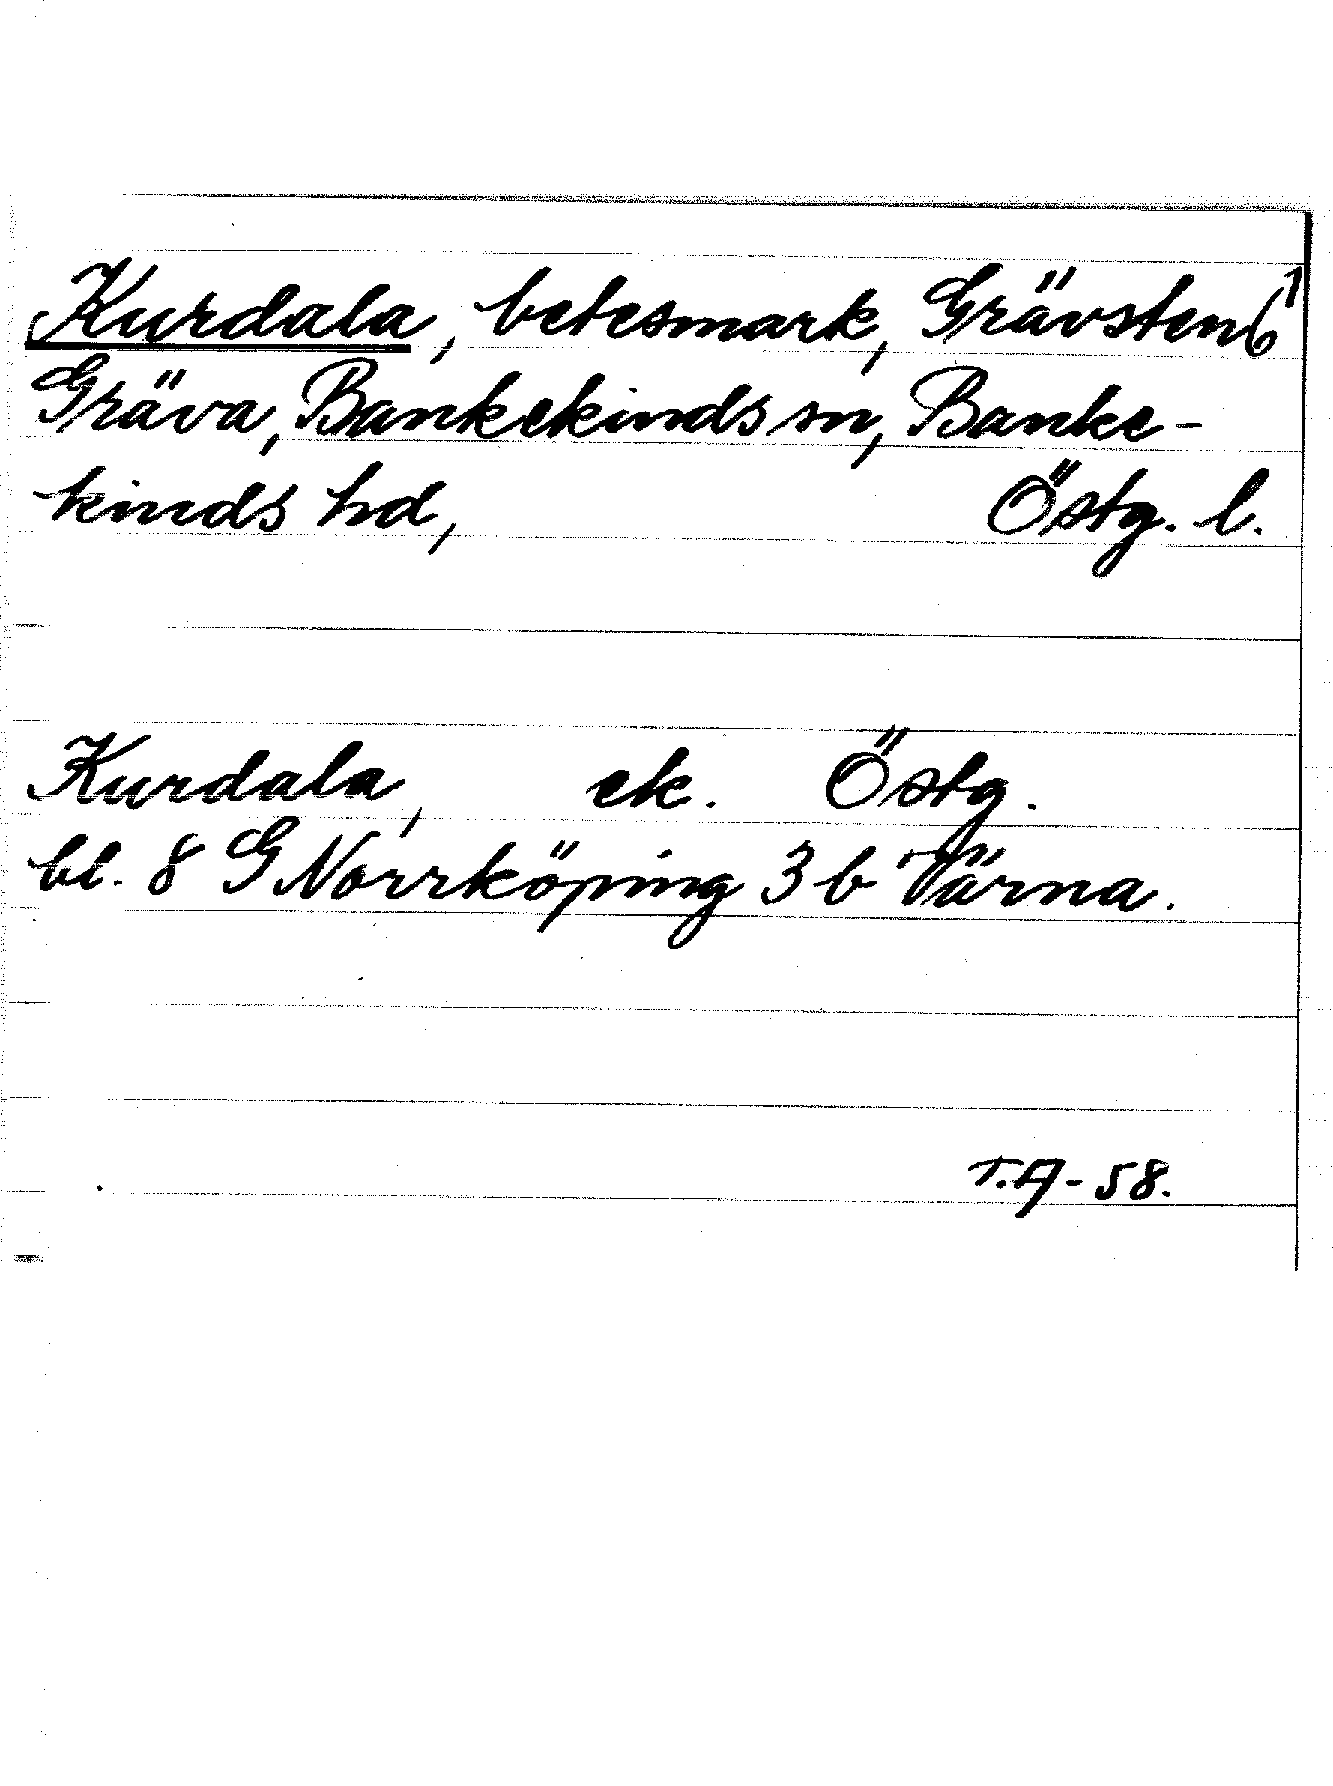 Kurdala, betesmark, Grävsten 6¹
Gräva, Bankekinds sn, Banke-
kinds hd, Östg. l.
Kurdala, ek. Östg.
bl. 8 G Norrköping 3 b Värna.
T.A-58.